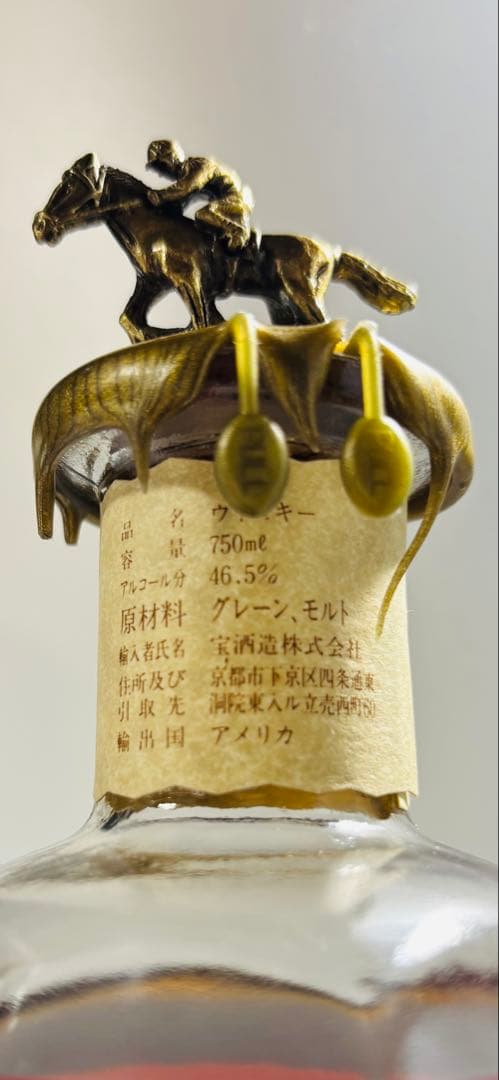 品名 ウ
容量 750ml
アルコール分 46.5%
原材料 グレーン、モルト
輸入者氏名 宝酒造株式会社
住所及び 京都市下京区四条通東
引取先 洞院東入ル立売西町60
輸出国 アメリカ